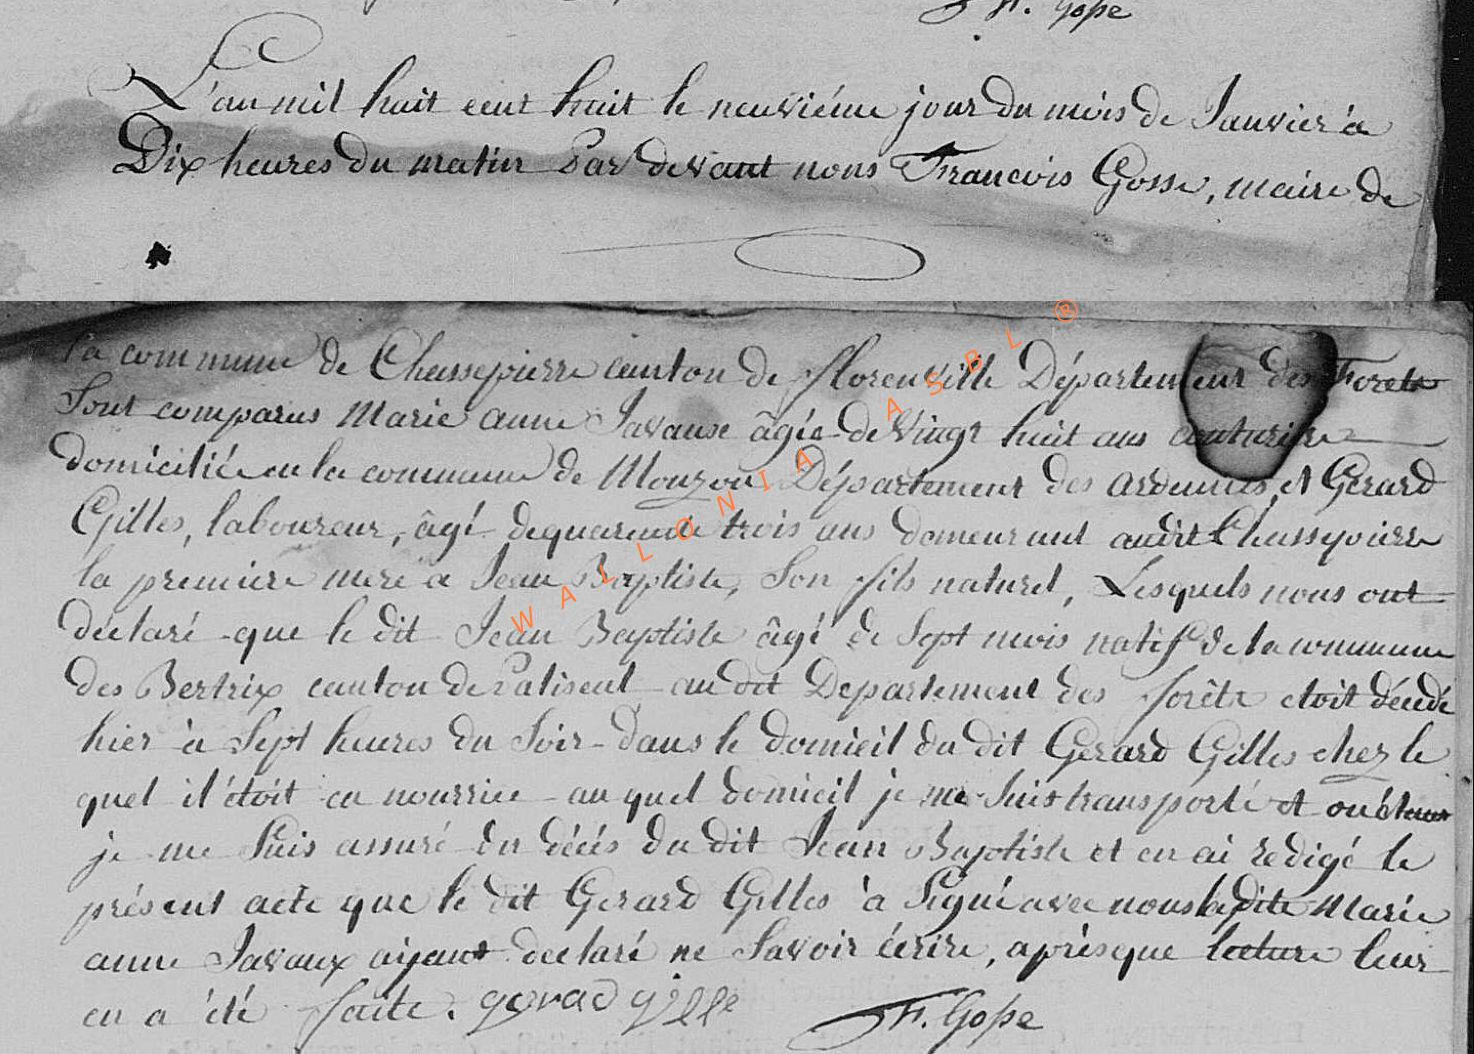 F. Gosse
L'an mil huit cent huit le neuviéme jour du mois de Janvier à
Dix heures du matin Par devant nous Francois Gosse, maire de
la commune de Chassepierre canton de florenville Département des Forets
Sont comparus Marie anne Javause âgée de Vingt huit ans couturiere
domiciliée en la commune de Mouzon Département des ardennes et Gerard
Gilles, laboureur, âgé de quarente trois ans demeurant audit Chassepierre
la premiere mere a Jean Baptiste, Son fils naturel, Lesquels nous ont
déclaré que le dit Jean Baptiste âgé de Sept mois natif de la commune
des Bertrix canton de Paliseul au dit Departement des forêts etoit décédé
hier à Sept heures du Soir Dans le domicil du dit Gerard Gilles chez le
quel il étoit en nourrice au quel domicil je me Suis transporté et où étant
je me Suis assuré du décés du dit Jean Baptiste et en ai redigé le
présent acte que le dit Gerard Gilles à Signé avec nous la dite Marie
anne Javaux aijant declaré ne Savoir écrire, aprés que lecture leur
en a été faite. gerad gille F. Gosse
WALLONIA ASBL ®